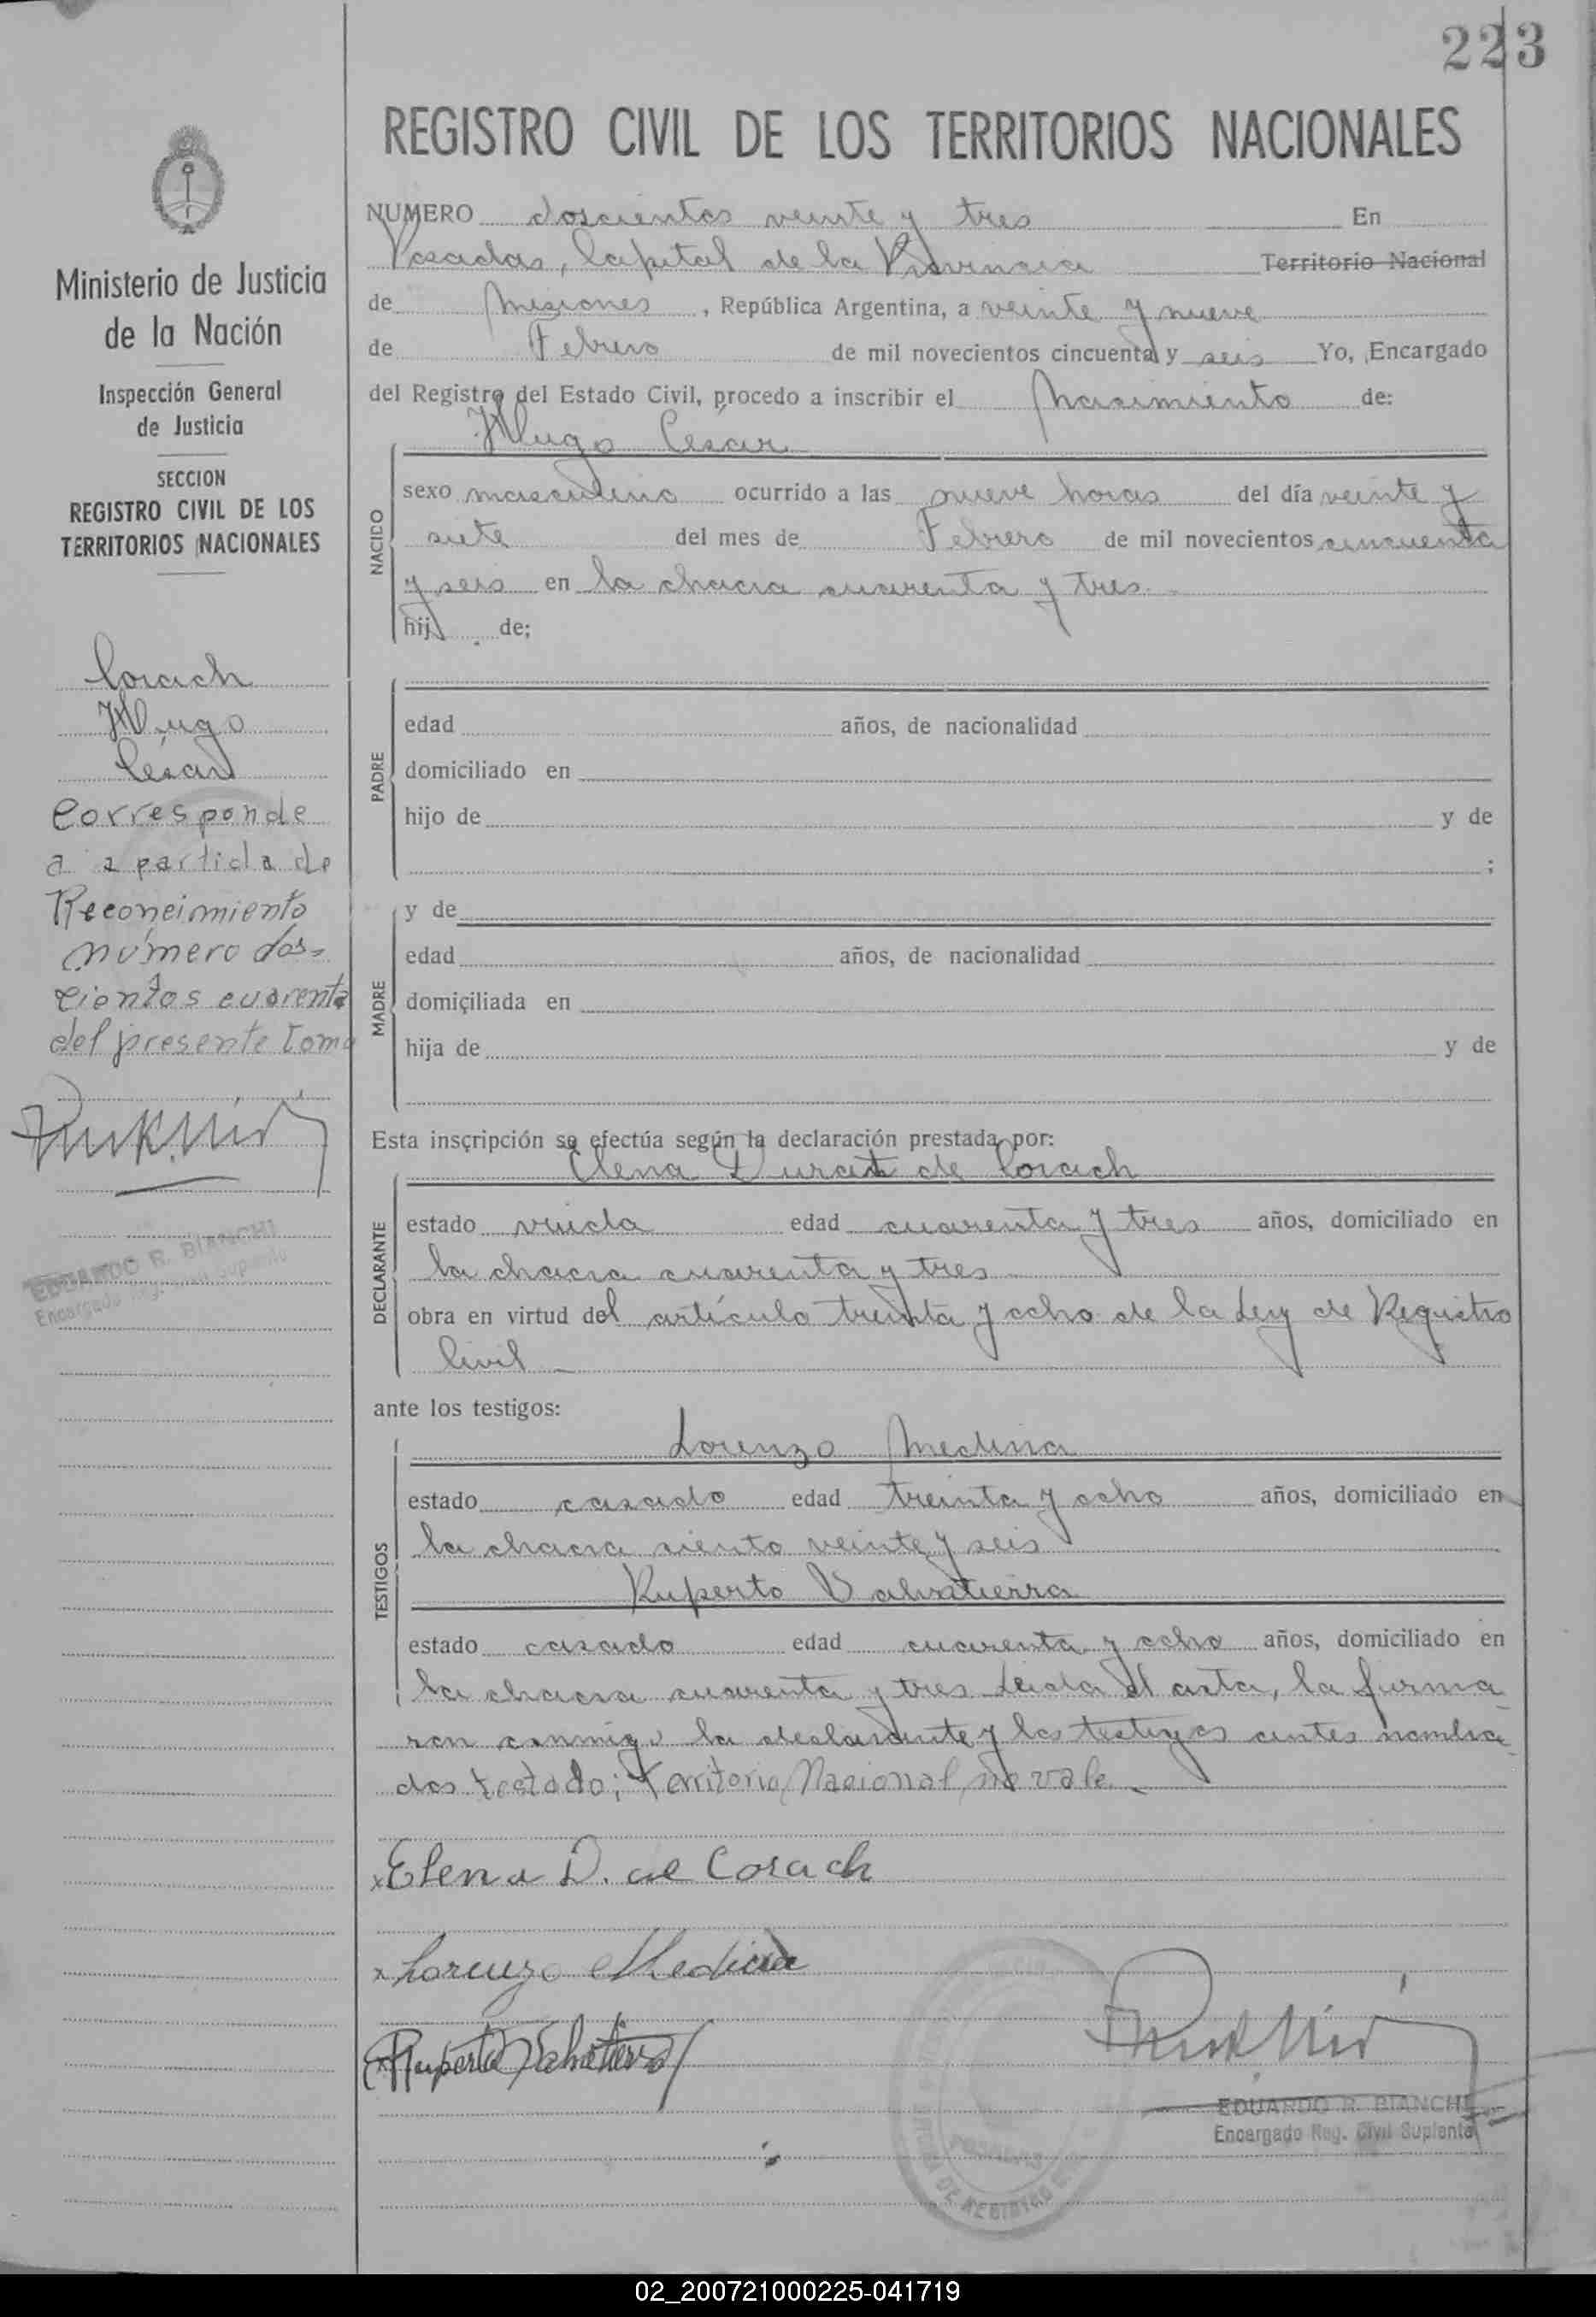 223
REGISTRO CIVIL DE LOS TERRITORIOS NACIONALES
Ministerio de Justicia
de la Nación
Inspección General
de Justicia
SECCION
REGISTRO CIVIL DE LOS
TERRITORIOS NACIONALES
Corach
Hugo
César
Corresponde
a a partida de
Reconcimiento
número dos-
cientos cuarenta
del presente tomo
EDUARDO R. BIANCHI
Encargado Reg. Civil Suplente
NUMERO doscientos veinte y tres En
Posadas, Capital de la Provincia Territorio Nacional
de Misiones, República Argentina, a veinte y nueve
de Febrero de mil novecientos cincuenta y seis Yo, Encargado
del Registro del Estado Civil, procedo a inscribir el Nacimiento de:
Hugo César
NACIDO
sexo masculino ocurrido a las nueve horas del día veinte y
siete del mes de Febrero de mil novecientos cincuenta
y seis en la chacra cuarenta y tres.
hij de;
PADRE
edad años, de nacionalidad
domiciliado en
hijo de y de
;
MADRE
y de
edad años, de nacionalidad
domiciliada en
hija de y de
Esta inscripción se efectúa según la declaración prestada por:
Elena Durat de Corach
DECLARANTE
estado viuda edad cuarenta y tres años, domiciliado en
la chacra cuarenta y tres
obra en virtud del artículo treinta y ocho de la Ley de Registro
Civil
ante los testigos:
TESTIGOS
Lorenzo Medina
estado casado edad treinta y ocho años, domiciliado en
la chacra ciento veinte y seis
Ruperto Valvatierra
estado casado edad cuarenta y ocho años, domiciliado en
la chacra cuarenta y tres Leida el acta, la firma
ron conmigo la declarante y los testigos antes nombra
dos testado; Territorio Nacional, no vale.
x Elena D. de Corach
x Lorenzo Medina
x Ruperto Valvatierra
EDUARDO R. BIANCHI
Encargado Reg. Civil Suplente
02_200721000225-041719